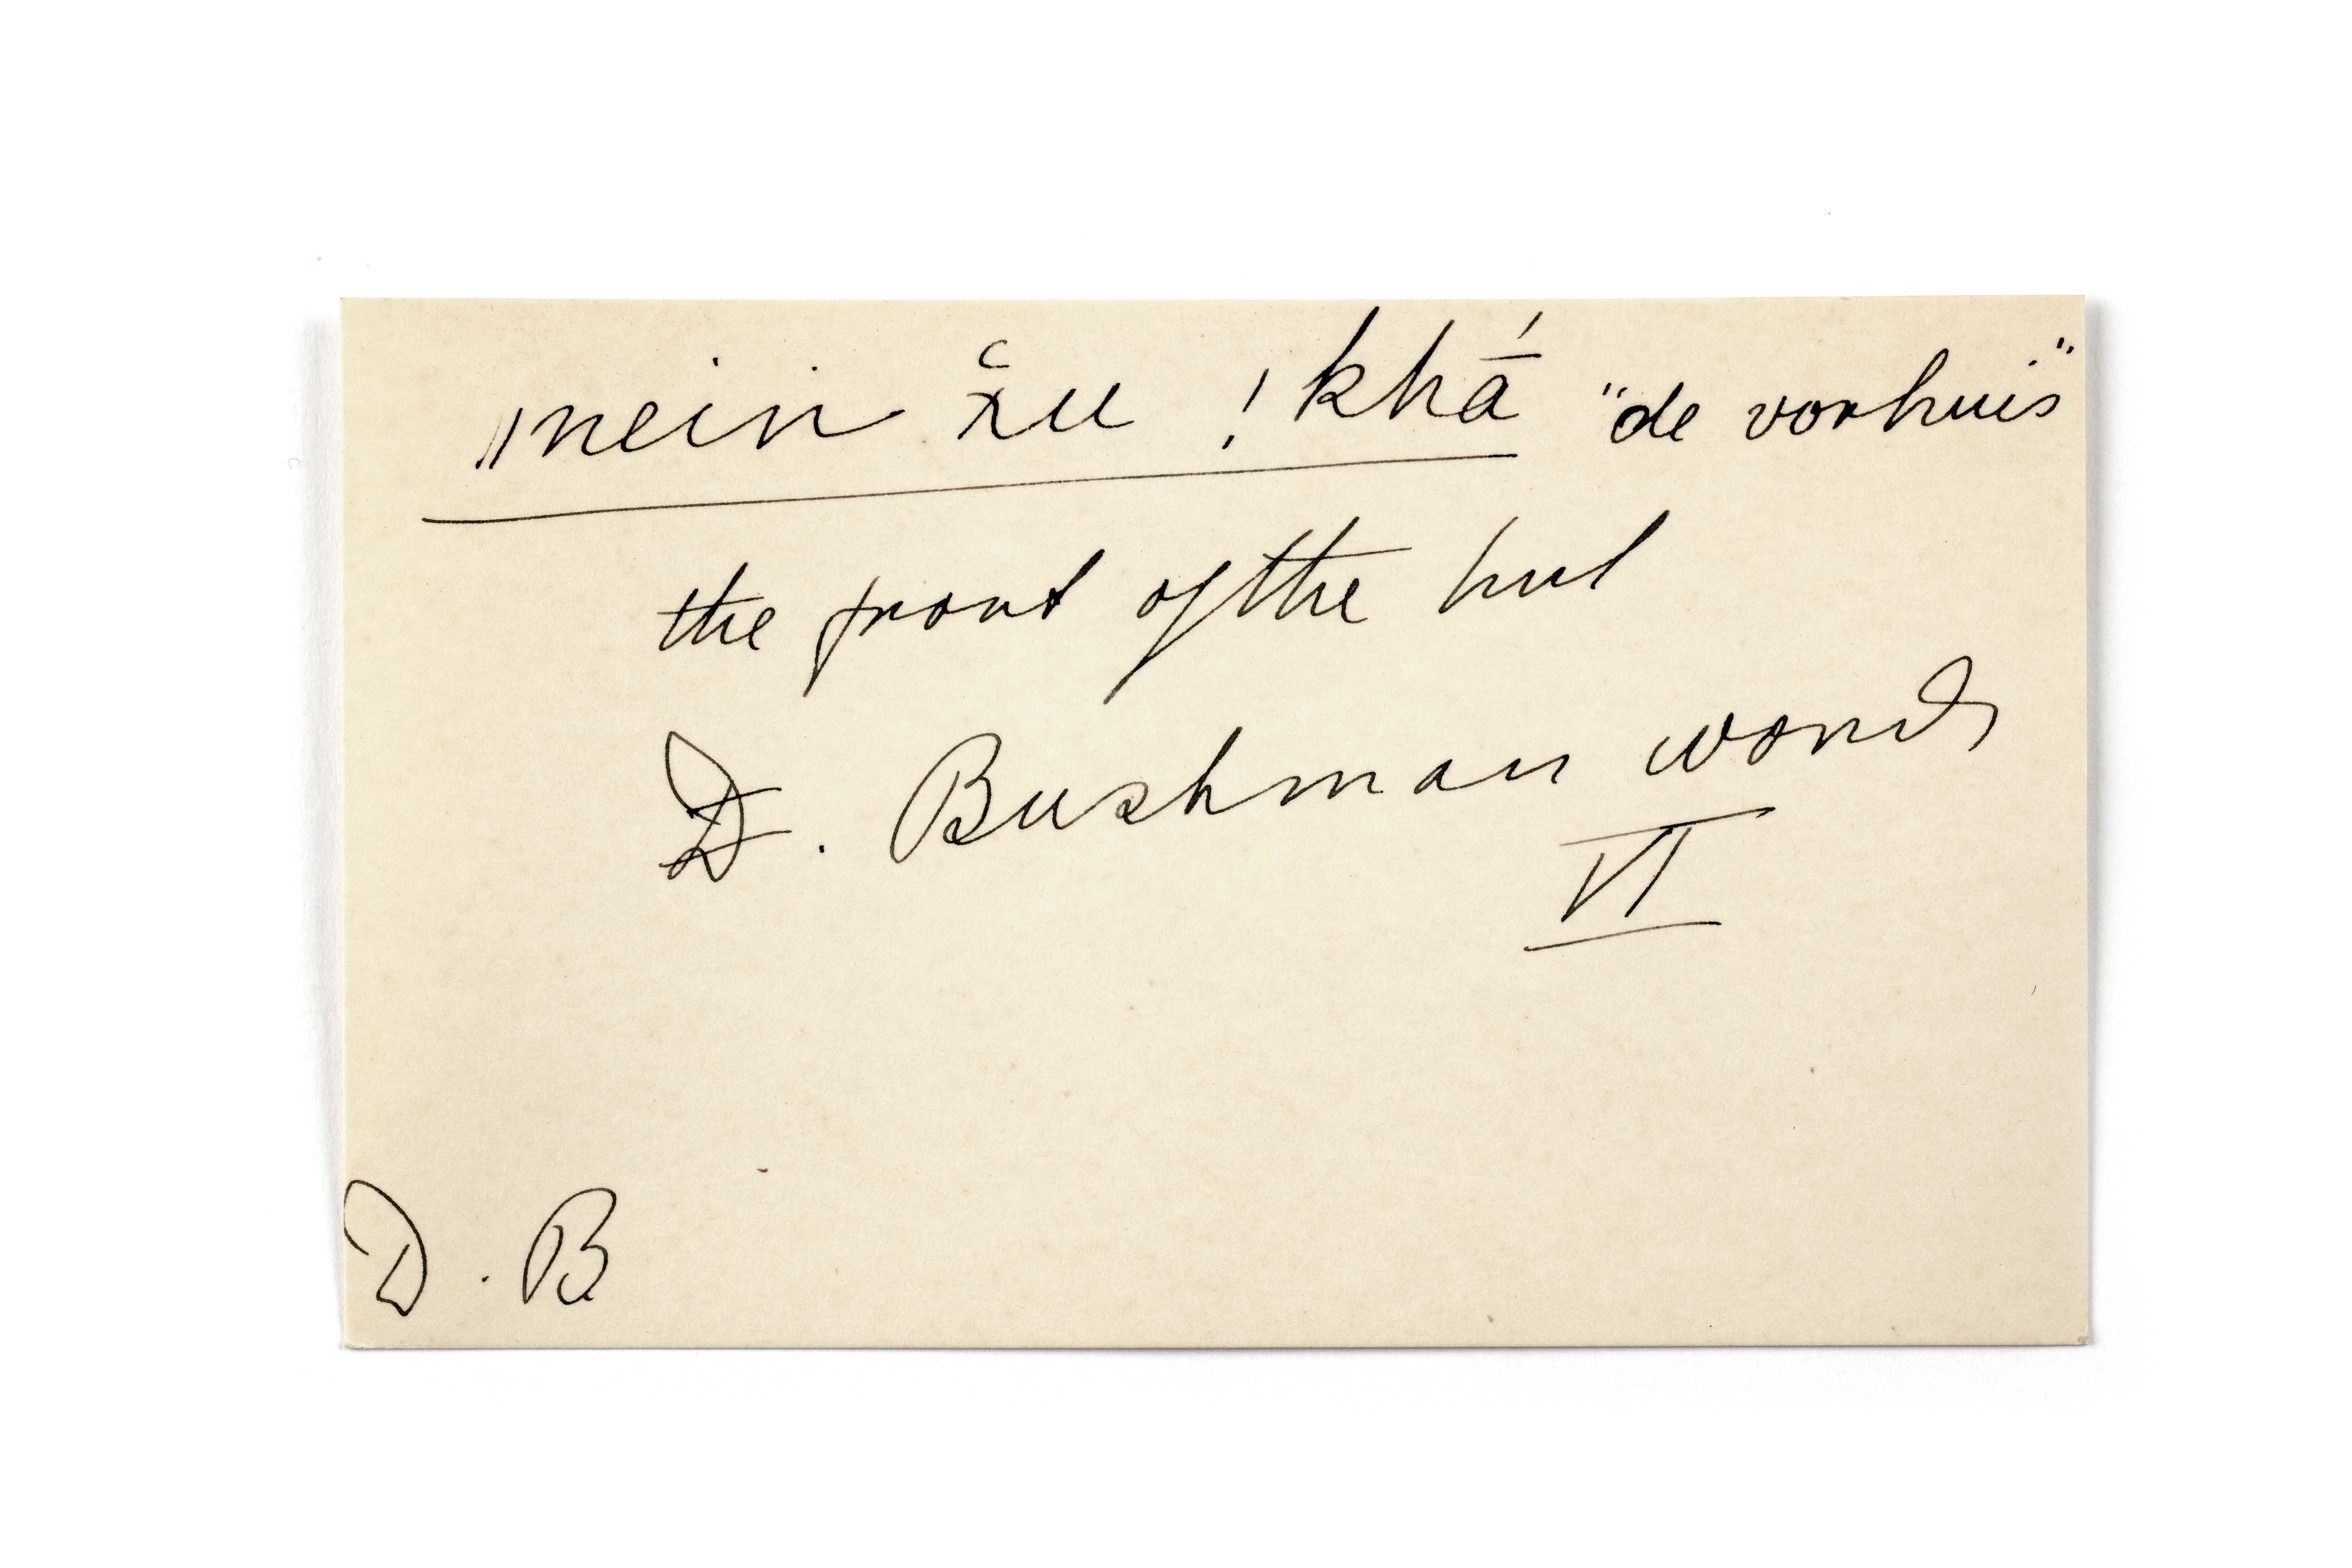 ǁnein x̆u !khā́ "de vorhuis"
the front of the hut
D. Bushman words
VI
D. B